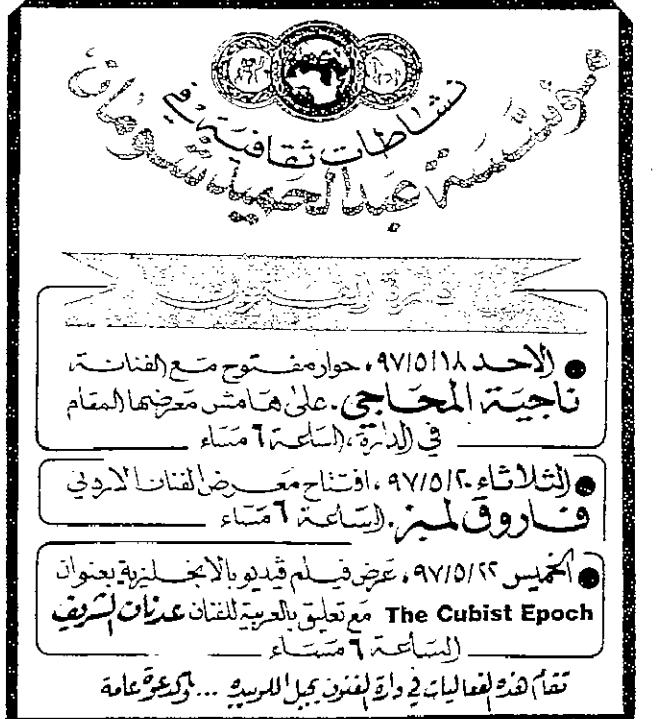 نشاطات ثقافية في
مؤسسة عبد الحميد شومان
دارة الفنون
الاحد ٩٧/٥/١٨، حوار مفتوح مع الفنانة
ناجية المحاجي. على هامش معرضها المقام
في الدارة، الساعة ٦ مساء
الثلاثاء ٩٧/٥/٢٠، افتتاح معرض الفنان الاردني
فاروق لمبز. الساعة ٦ مساء
الخميس ٩٧/٥/٢٢، عرض فيلم ڤيديو بالانجليزية بعنوان
The Cubist Epoch مع تعليق بالعربية للفنان عدنان الشريف
الساعة ٦ مساء
تقام هذه الفعاليات في دارة الفنون بجبل اللويبدة ... والدعوة عامة